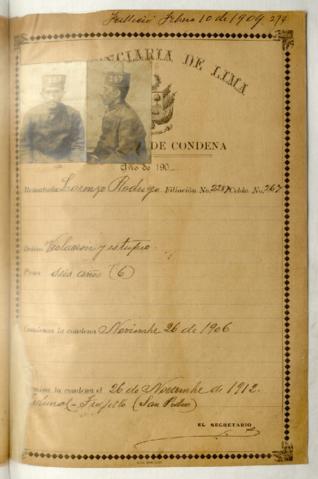 Falleció Febrero 10 de 1909. 274
NCIARIA DE LIMA
267
DE CONDENA
Año de 190
Rematado Lorenzo Rodrigo Filiación No. Celda No. 267
Delito Violación y estupro
Pena seis años (6)
Comienza la condena Noviembre 26 de 1906
la condena el 26 de Noviembre de 1912.
Tribunal - Trujillo (San Pedro)
EL SECRETARIO